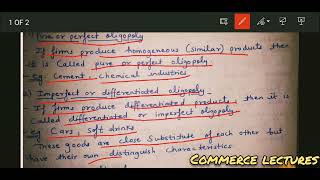 1 OF 2
1) Pure or perfect oligopoly
If firms produce homogeneous (similar) products then
it is called pure or perfect oligopoly
Eg. Cement, chemical industries
2) Imperfect or differentiated oligopoly
If firms produce differentiated products, then it is
called differentiated or imperfect oligopoly
eg Cars, soft drinks
These goods are close Substitute of each other but
have their own distinguish characteristics
COMMERCE LECTURES